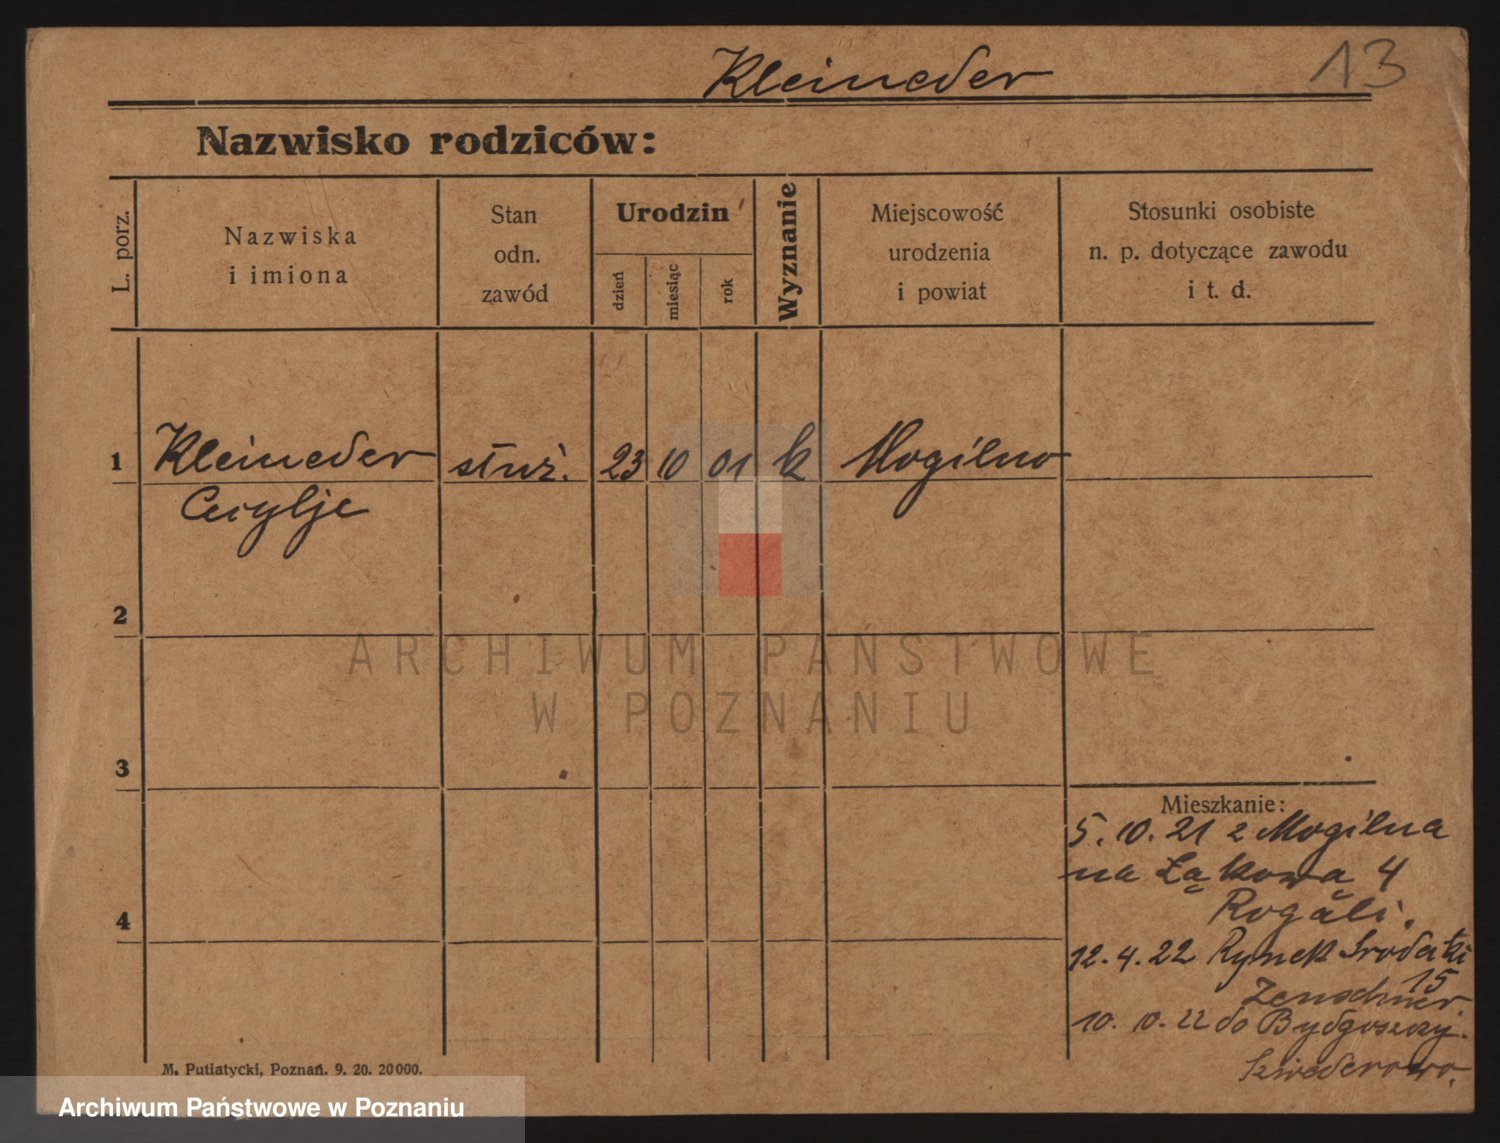 Kleineder
13
Nazwisko rodziców:
L. porz.
Nazwiska
i imiona
Stan
odn.
zawód
Urodzin
dzień
miesiąc
rok
Wyznanie
Miejscowość
urodzenia
i powiat
Stosunki osobiste
n. p. dotyczące zawodu
i t. d.
1 Kleineder służ. 23 10 01 k Mogilno
Cecylje
2
3
4
ARCHIWUM PAŃSTWOWE
W POZNANIU
Mieszkanie:
5. 10. 21 z Mogilna
na Łąkową 4
Rogali.
12. 4. 22 Rynek Śródecki
15
10. 10. 22 do Bydgoszczy.
Szwederowo.
M. Putiatycki, Poznań. 9. 20. 20000.
Archiwum Państwowe w Poznaniu